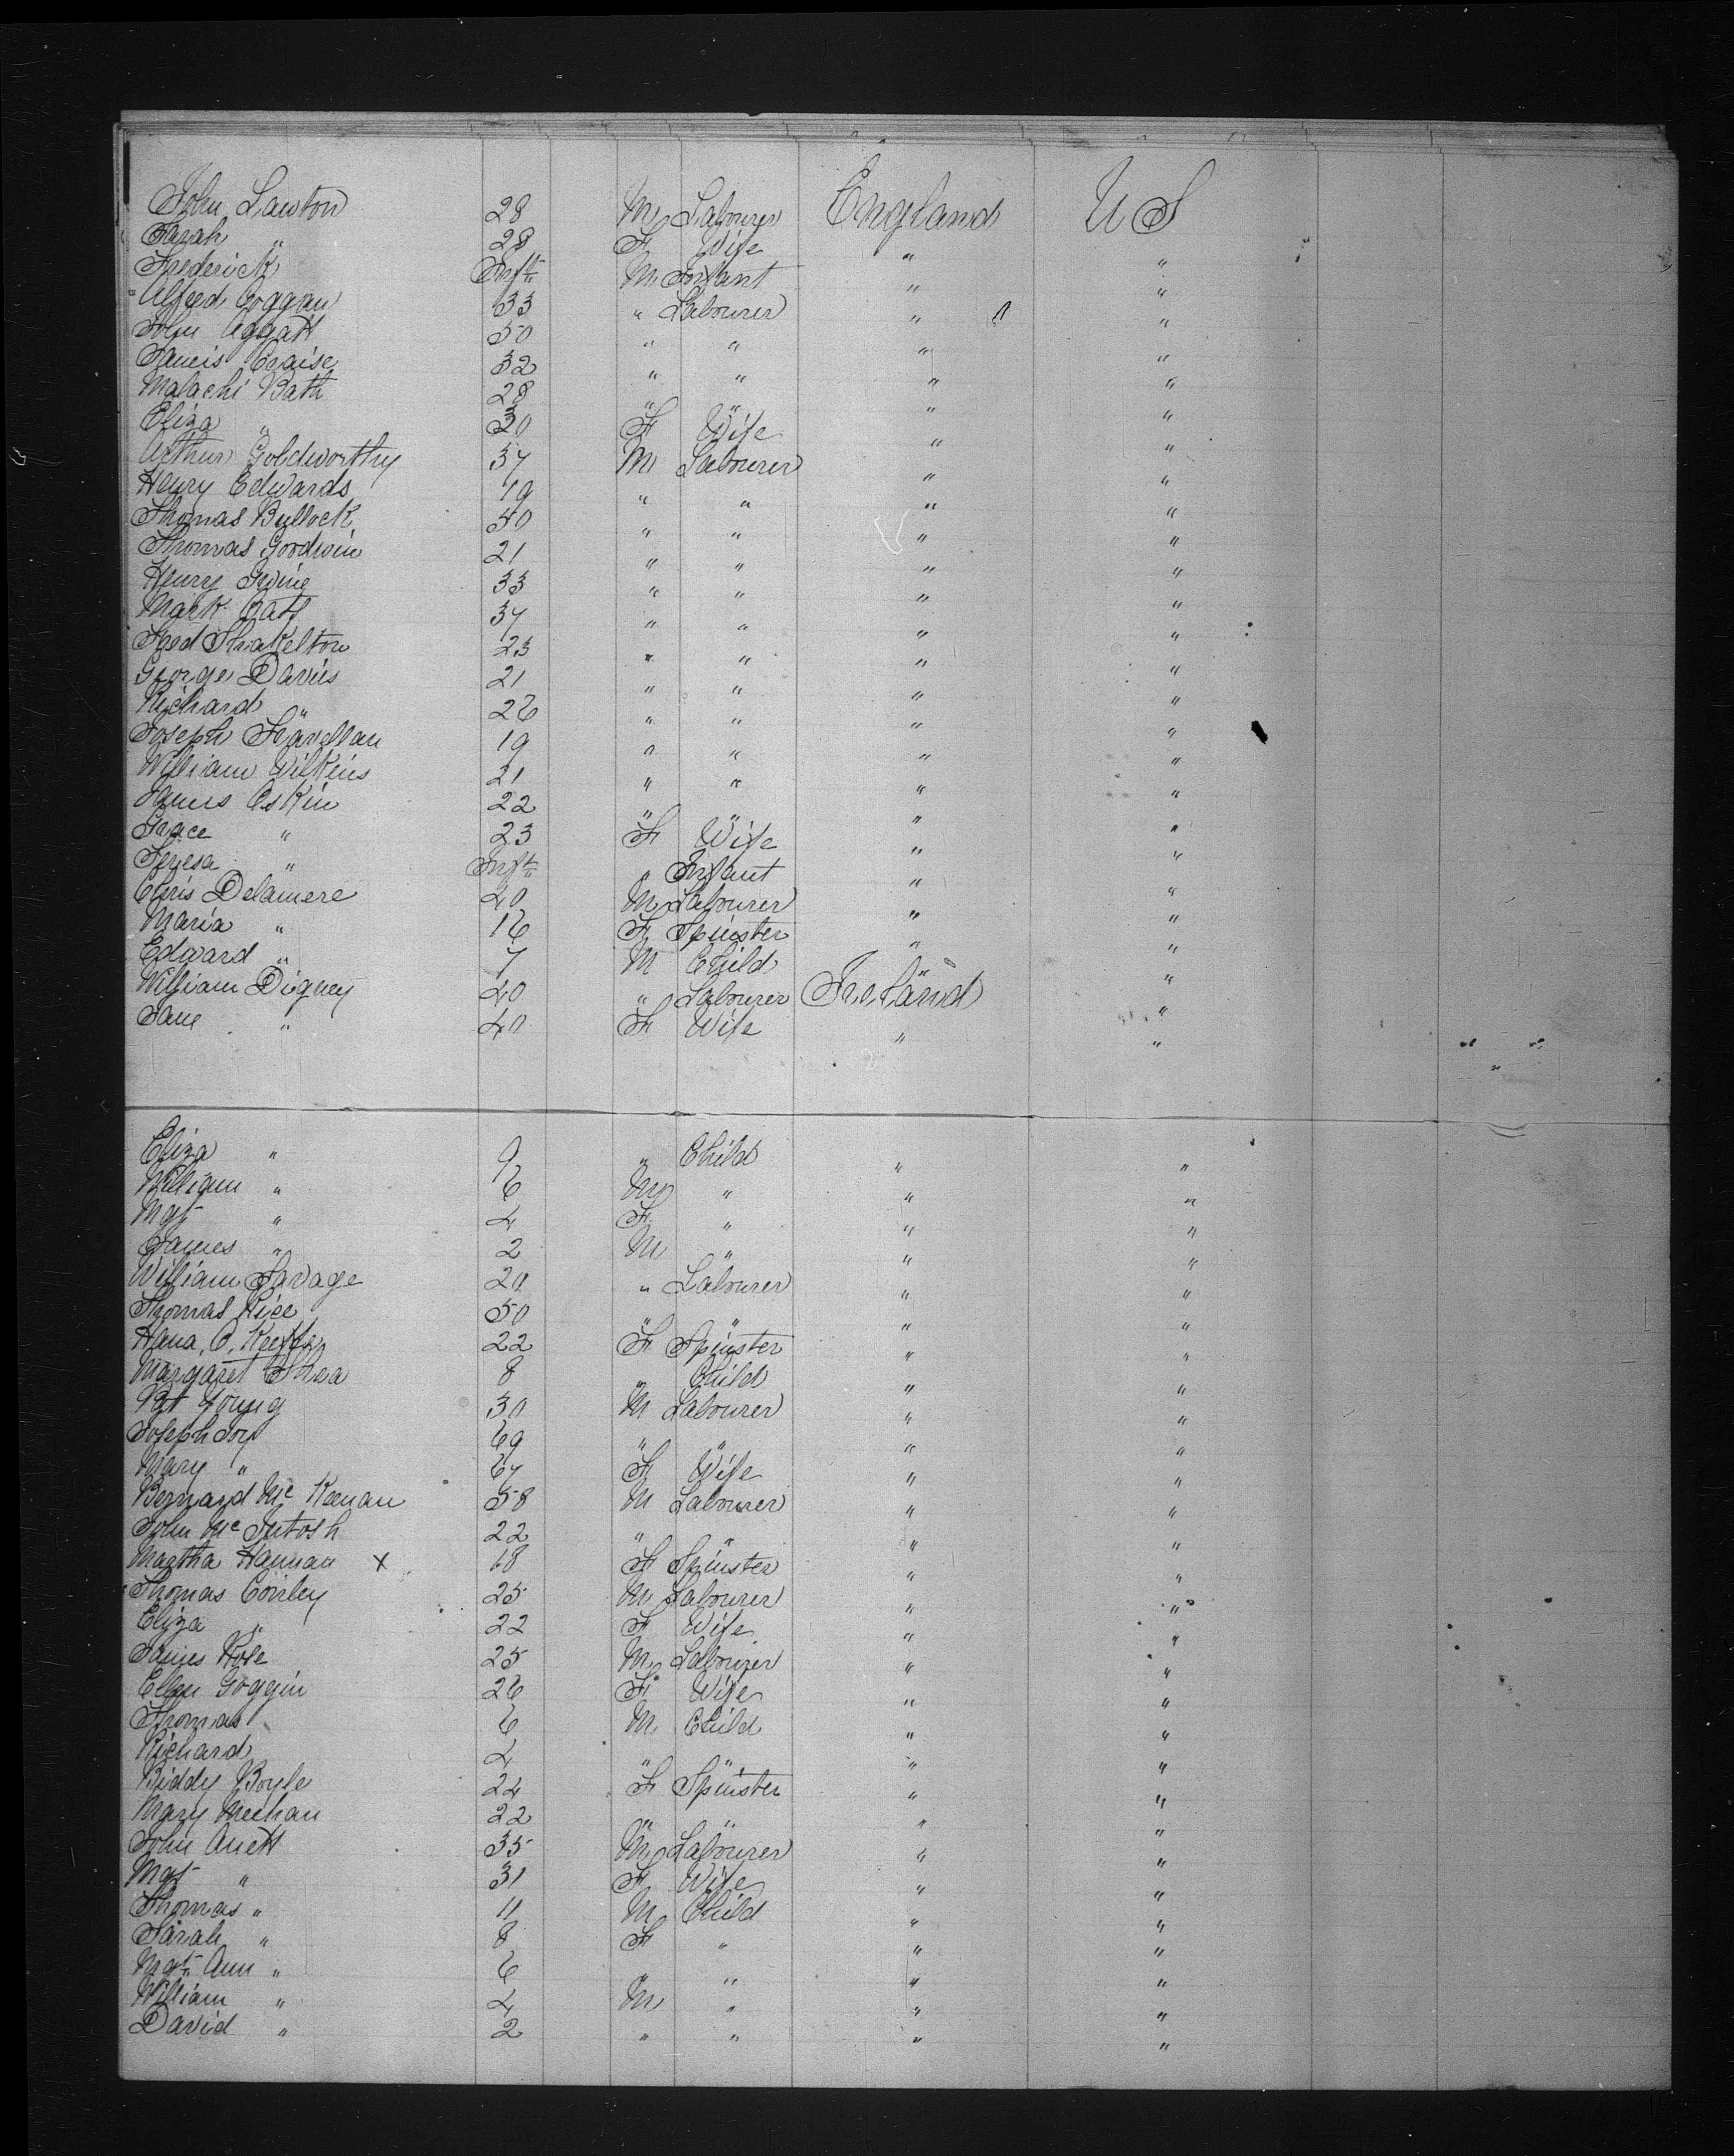 John Lawton 28 M Labourer England U S
Sarah " 28 F Wife " "
Frederick Inft M Infant " "
Alfred Goggan 33 " Labourer " "
John Aggatt 50 " " " "
Francis Craise 32 " " " "
Malachi Bath 28 " " " "
Eliza " 30 F Wife " "
Arthur Goldworthy 37 M Labourer " "
Henry Edwards 19 " " " "
Thomas Bullock 50 " " " "
Thomas Goodwin 21 " " " "
Henry 33 " " " "
Mark 37 " " " "
Fred Shakelton 23 " " " "
George Davies 21 " " " "
Richard " 26 " " " "
Joseph 19 " " " "
William Wilkins 21 " " " "
James Eskin 22 " " " "
Grace " 23 F Wife " "
Teresa " Inft " Infant " "
Chris Delamere 40 M Labourer " "
Maria " 16 F Spinster " "
Edward " 7 M Child " "
William Digney 40 " Labourer Ireland "
Jane " 40 F Wife " "
Eliza " 9 " Child " "
William " 6 M " " "
Mgt " 4 F " " "
James " 2 M " " "
William Savage 20 " Labourer " "
Thomas Rice 50 " " " "
Hana O. Keeffe 22 F Spinster " "
Margaret Shea 8 " Child " "
Pat Young 30 M Labourer " "
Joseph Joy 69 " " " "
Mary " 67 F Wife " "
Bernard Mc Keenan 58 M Labourer " "
John Mc Intosh 22 " " " "
Martha Hannan x 18 F Spinster " "
Thomas Conley 25 M Labourer " "
Eliza " 22 F Wife " "
James 25 M Labourer " "
Ellen Goggin 26 F Wife " "
Thomas 6 M Child " "
Richard 4 " " " "
Biddy Boyle 24 F Spinster " "
Mary Meehan 22 " " " "
John Anett 35 M Labourer " "
Mgt " 31 F Wife " "
Thomas " 11 M Child " "
Sarah " 8 F " " "
Mgt Ann " 6 " " " "
William " 4 M " " "
David " 2 " " " "